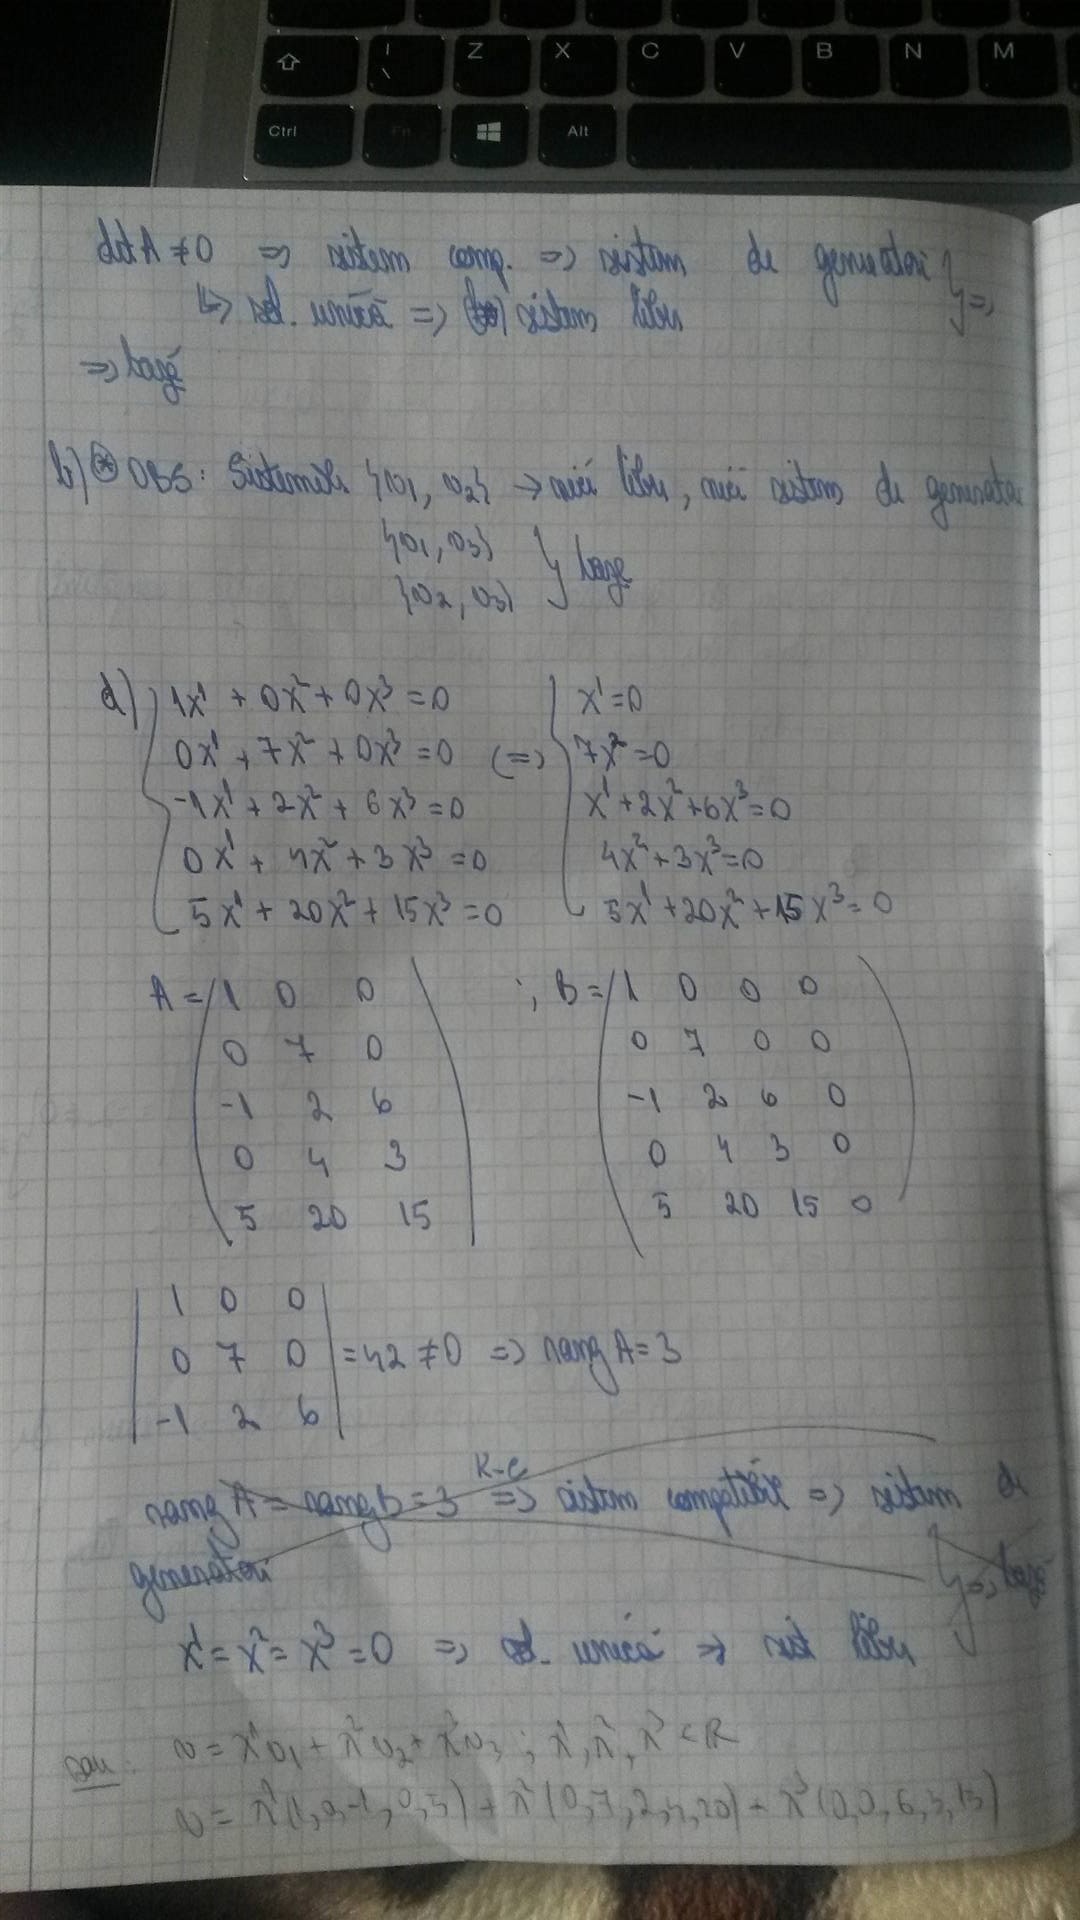 Z X C V B N M
Ctrl Fn Alt
det A ≠ 0 => sistem comp. => sistem de generatori } =>
↳ sol. unică => sistem liber
=> bază
b) * OBS: Sistemele {v1, v2} → nici liber, nici sistem de generatori
{v1, v3}
{v2, v3} } baze
d) { 1x¹ + 0x² + 0x³ = 0 { x¹ = 0
0x¹ + 7x² + 0x³ = 0 <=> 7x² = 0
-1x¹ + 2x² + 6x³ = 0 x¹ + 2x² + 6x³ = 0
0x¹ + 4x² + 3x³ = 0 4x² + 3x³ = 0
5x¹ + 20x² + 15x³ = 0 5x¹ + 20x² + 15x³ = 0
A = ( 1 0 0 ) ; B = ( 1 0 0 0 )
0 7 0 0 7 0 0
-1 2 6 -1 2 6 0
0 4 3 0 4 3 0
5 20 15 5 20 15 0
| 1 0 0 |
| 0 7 0 | = 42 ≠ 0 => rang A = 3
| -1 2 6 |
rang A = rang B = 3 K-C => sistem compatibil => sistem de
generatori } => bază
x¹ = x² = x³ = 0 => sol. unică => sist liber
sau: v = x¹v1 + x²v2 + x³v3 ; x¹, x², x³ ∈ R
v = x¹(1,0,-1,0,5) + x²(0,7,2,4,20) + x³(0,0,6,3,15)